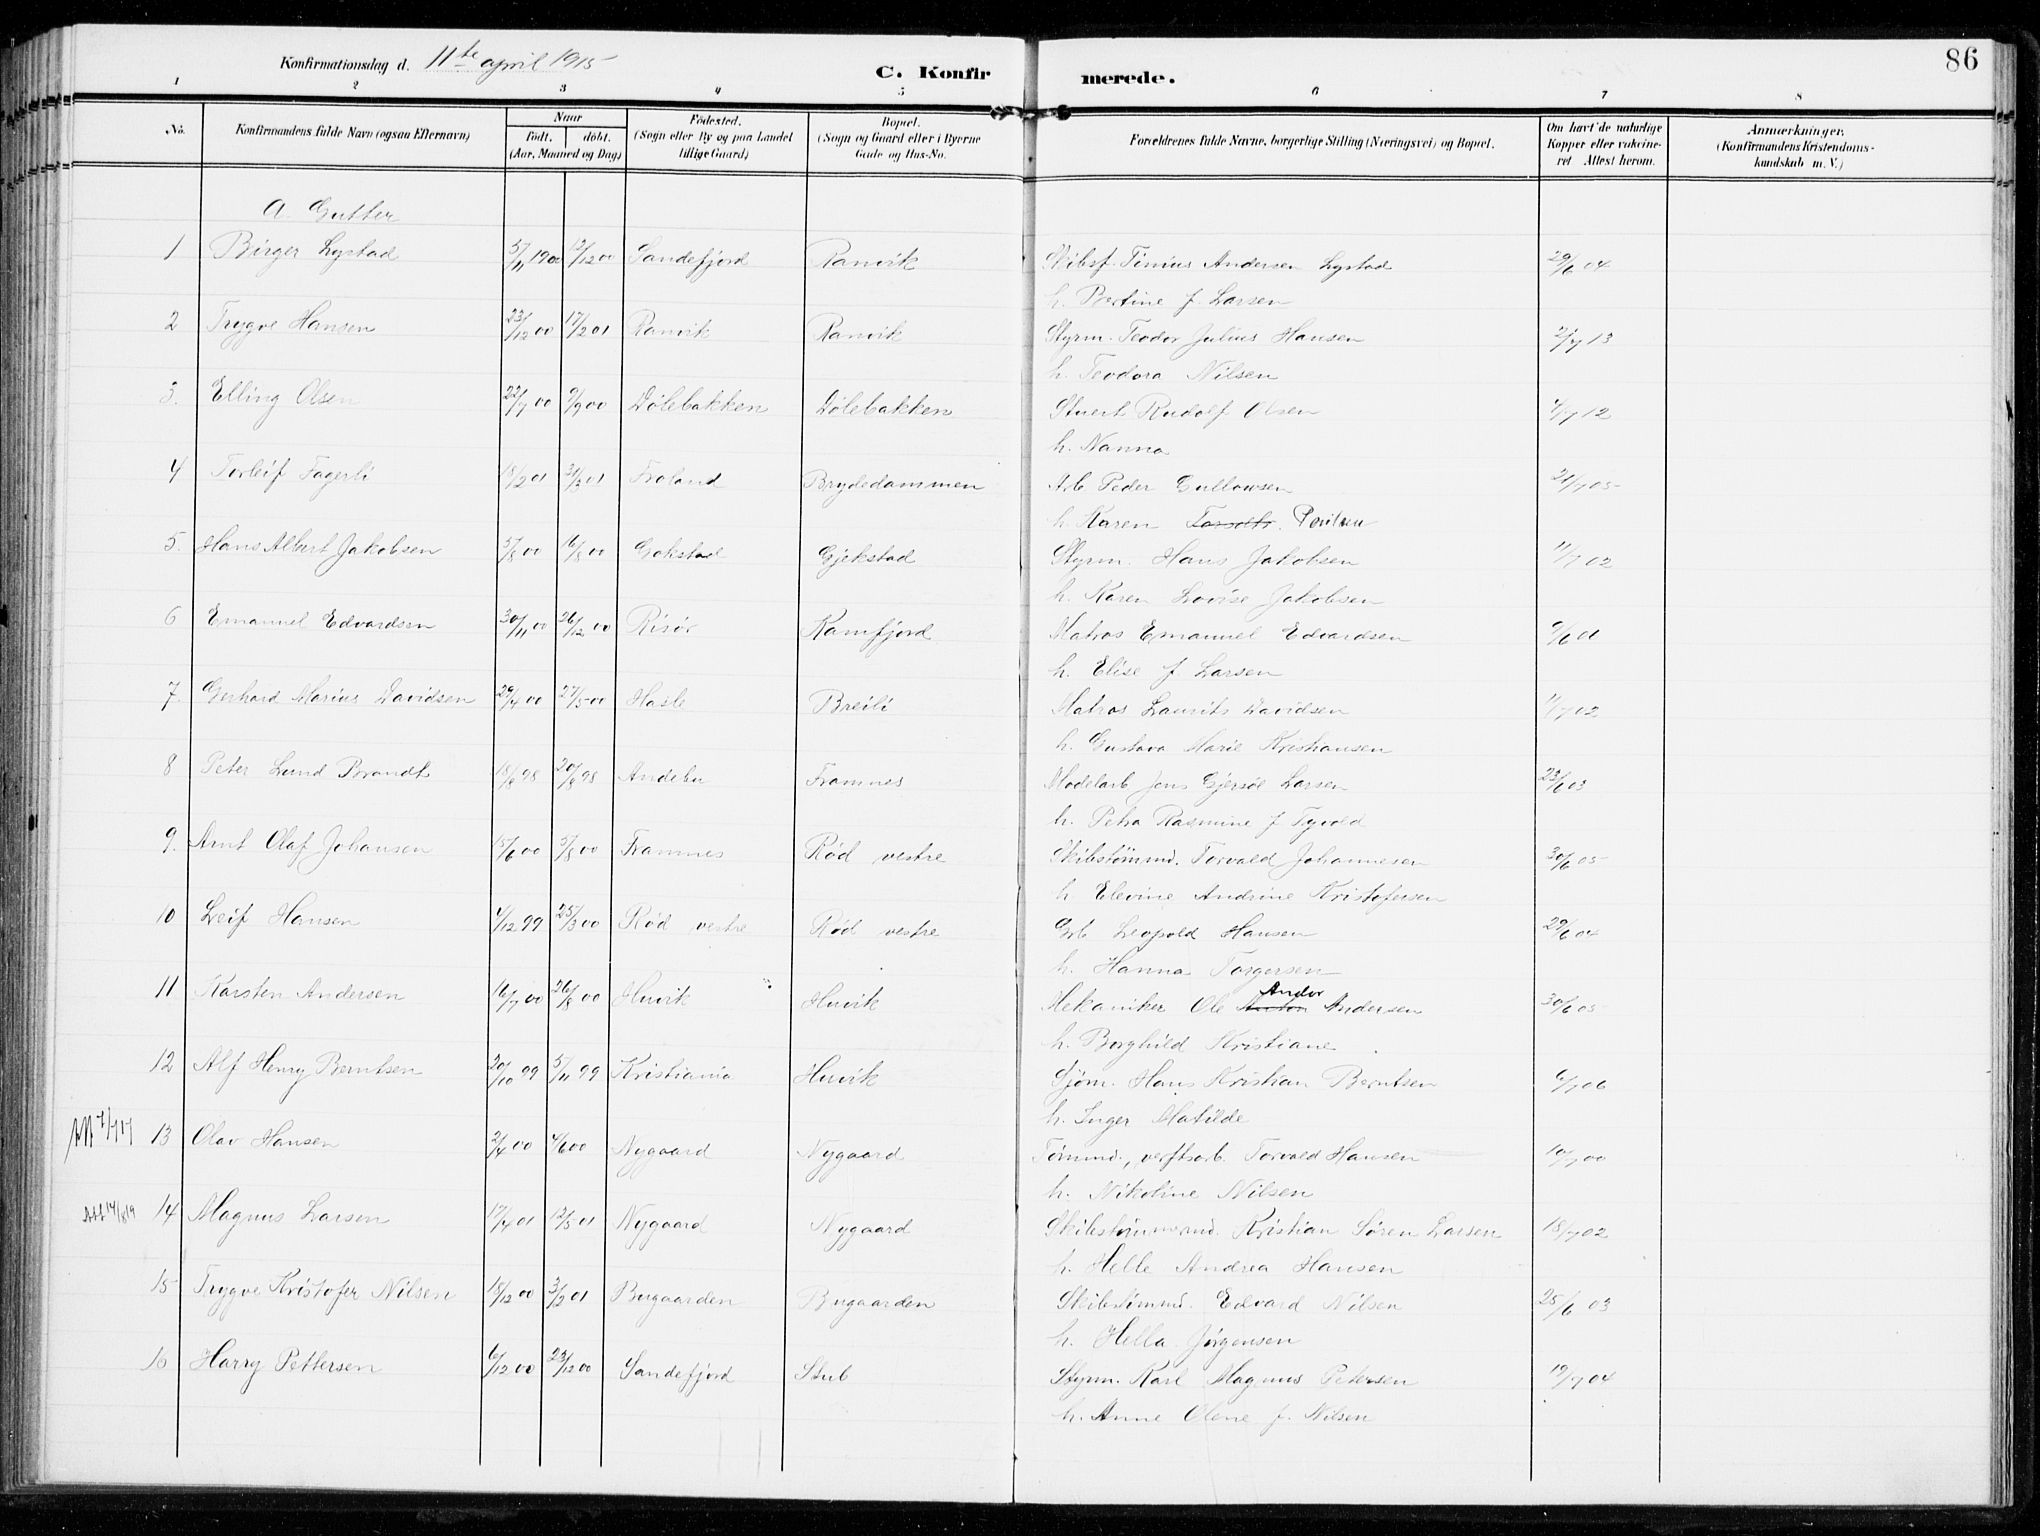 86
Konfirmationsdag d. 11te april 1915
C. Konfirmerede.
1 2 3 4 5 6 7 8
No. Konfirmandens fulde Navn (ogsaa Efternavn) Naar født. døbt. (Aar, Maaned og Dag) Fødested. (Sogn eller By og paa Landet tillige Gaard) Bopæl. (Sogn og Gaard eller i Byerne Gade og Hus-No. Forældrenes fulde Navne, borgerlige Stilling (Næringsvei) og Bopæl. Om havt de naturlige Kopper eller vakcineret Attest herom. Anmærkninger. (Konfirmandens Kristendomskundskab m. V.)
a. Gutter
1 Birger Lystad 5/11 1900 12/12 00 Sandefjord Ranvik Skibsf. Tinius Andersen Lystad 29/6 04
h. Bertine f. Larsen
2 Trygve Hansen 23/12 00 17/2 01 Ranvik Ranvik Styrm. Teodor Julius Hansen 2/7 13
h. Teodora Nilsen
3. Elling Olsen 22/7 00 9/9 00 Dølebakken Dølebakken Stuert Rudolf Olsen 4/7 12
h. Nanna
4 Torleif Fagerli 18/2 01 31/3 01 Froland Brydedammen Arb Peder Gullowsen 21/7 05
h. Karen Poulsen
5. Hans Albert Jakobsen 5/8 00 16/8 00 Gokstad Gjekstad Styrm. Hans Jakobsen 11/7 02
h. Karen Lovise Jakobsen
6 Emanuel Edvardsen 30/11 00 26/12 00 Risør Kamfjord Matros Emanuel Edvardsen 9/6 01
h. Elise f. Larsen
7 Gerhard Marius Davidsen 29/4 00 27/5 00 Hasle Breili Matros Laurits Davidsen 11/7 02
h. Gustava Marie Kristiansen
8 Peter Lund Brandt 18/6 98 20/8 98 Andebu Framnes Modelarb Jens Gjersøe Larsen 23/6 03
h. Petra Rasmine f
9. Arnt Olaf Johansen 15/6 00 5/8 00 Framnes Rød vestre Skibstømmd. Torvald Johannesen 30/6 05
h Elevine Andrine Kristofersen
10 Leif Hansen 4/12 99 25/3 00 Rød vestre Rød vestre Leopold Hansen 29/6 04
h. Hanna Torgersen
11 Karsten Andersen 16/7 00 26/8 00 Huvik Huvik Mekaniker Ole Andor Andersen 30/6 05
h. Borghild Kristiane
12 Alf Henry Berntsen 20/10 99 5/11 99 Kristiania Huvik Sjøm. Hans Kristian Berntsen 6/7 06
h. Inger Matilde
13 Olav Hansen 2/4 00 4/6 00 Nygaard Nygaard Tømmd., verftsarb. Torvald Hansen 10/7 00
h. Nikoline Nilsen
14 Magnus Larsen 17/4 01 12/5 01 Nygaard Nygaard Skibstømmermd. Kristian Søren Larsen 18/7 02
h. Helle Andrea Hansen
15 Trygve Kristofer Nilsen 18/12 00 3/2 01 Bugaarden Bugaarden Skibstømmd. Edvard Nilsen 25/6 03
h. Hella Jørgensen
16 Harry Pettersen 6/12 00 23/12 00 Sandefjord Stub Styrm. Karl Magnus Petersen 19/7 04
h. Anne Olene f. Nilsen